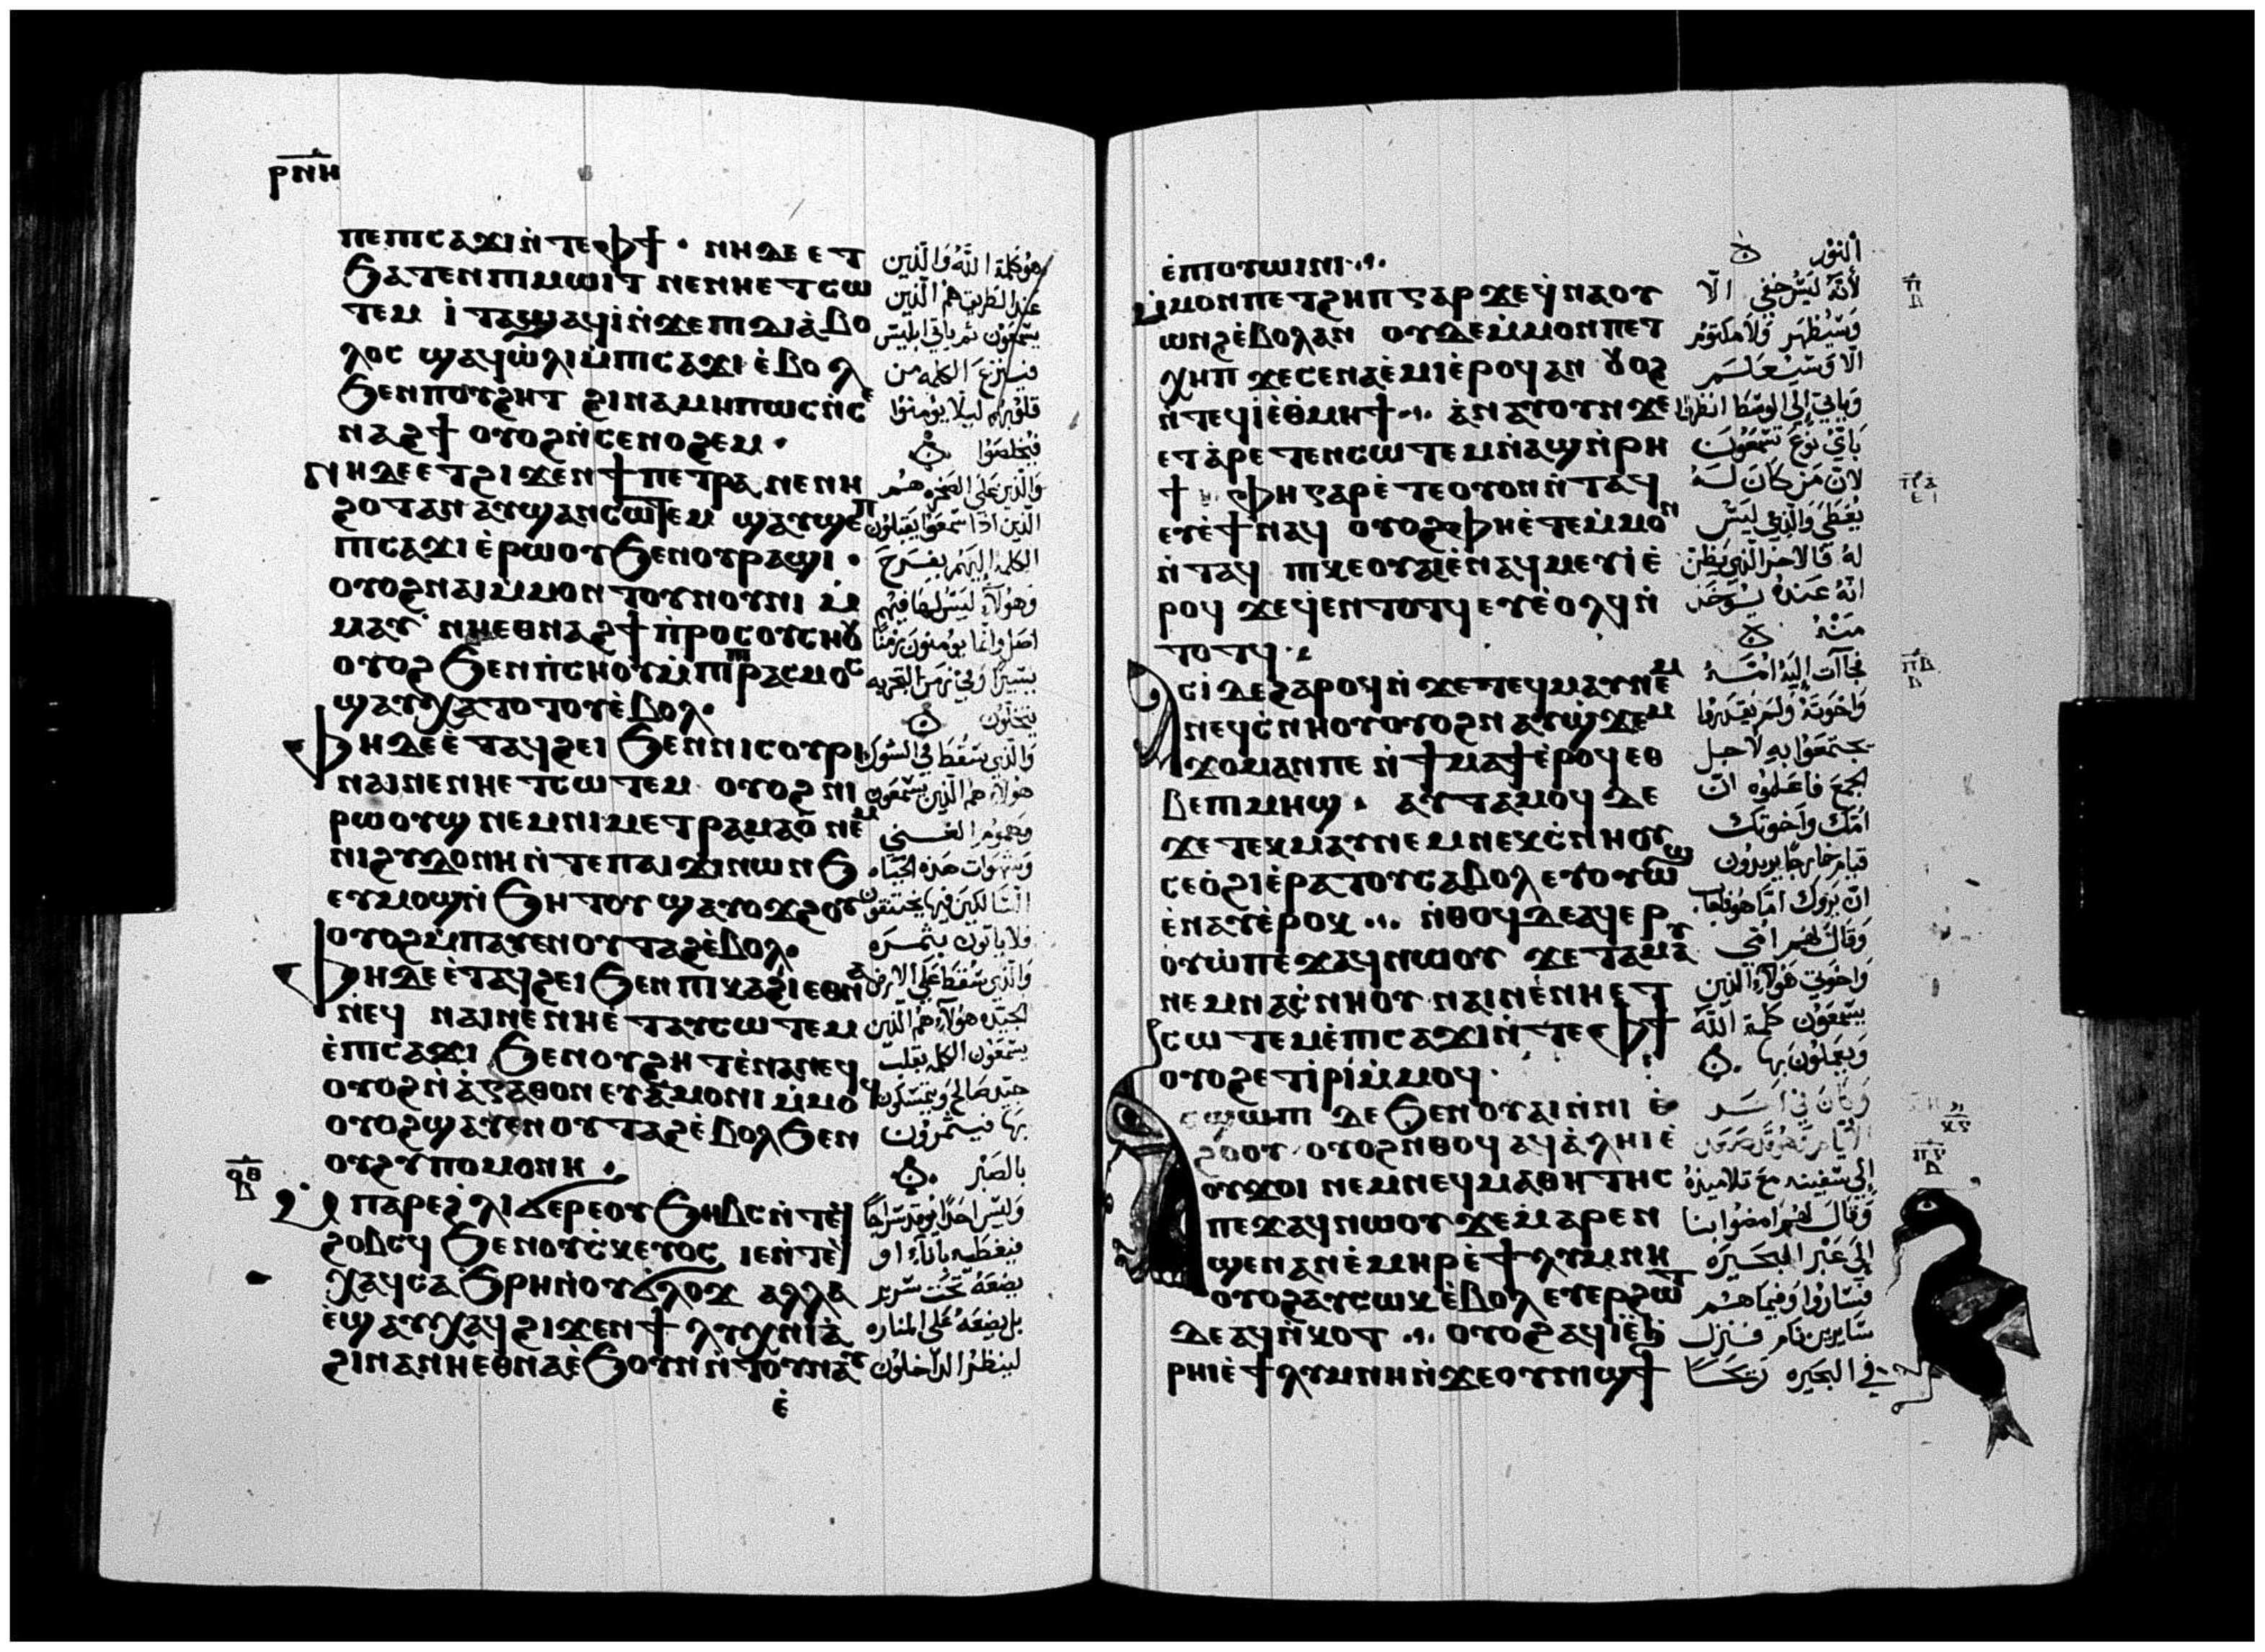 ⲣⲛⲏ
ⲡⲉⲡⲥⲁϫⲓⲛ̀ⲧⲉⲫϯ · ⲛⲏⲇⲉ ⲉⲧ
ϧⲁⲧⲉⲛⲡⲓⲙⲱⲓⲧ ⲛⲉⲛⲏⲉⲧⲥⲱ
ⲧⲉⲙ ⲓ̀ⲧⲁϣⲁϥⲓ̀ⲛ̀ϫⲉⲡⲓⲇⲓⲁ̀ⲃⲟ
ⲗⲟⲥ ϣⲁϥⲱ̀ⲗⲓⲙ̀ⲡⲥⲁϫⲓ ⲉ̀ⲃⲟⲗ
ϧⲉⲛⲡⲟⲩϩⲏⲧ ϩⲓⲛⲁⲙⲏⲡⲱⲥⲛ̀ⲥⲉ
ⲛⲁϩϯ ⲟⲩⲟϩⲛ̀ⲥⲉⲛⲟϩⲉⲙ ·
ⲛⲏⲇⲉⲉⲧϩⲓϫⲉⲛϯⲡⲉⲧⲣⲁ ⲛⲉⲛⲏ
ϩⲟⲧⲁⲛ ⲁⲩϣⲁⲛⲥⲱⲧⲉⲙ ϣⲁⲩϣⲉⲡ
ⲡⲥⲁϫⲓ ⲉ̀ⲣⲱⲟⲩϧⲉⲛⲟⲩⲣⲁϣⲓ ·
ⲟⲩⲟϩⲛⲁⲓⲙ̀ⲙⲟⲛ ⲧⲟⲩⲛⲟⲩⲛⲓ ⲙ̀
ⲙⲁⲩ ⲛⲏⲉⲑⲛⲁϩϯ ⲡ̀ⲣⲟⲥⲟⲩⲥⲏⲟⲩ
ⲟⲩⲟϩ ϧⲉⲛⲡ̀ⲥⲏⲟⲩⲙ̀ⲡⲓⲡⲓⲣⲁⲥⲙⲟⲥ
ϣⲁⲩⲭⲁⲧⲟⲧⲟⲩⲉ̀ⲃⲟⲗ·
ⲫⲏⲇⲉⲉ̀ⲧⲁϥϩⲉⲓ ϧⲉⲛⲛⲓⲥⲟⲩⲣⲓ
ⲛⲁⲓⲛⲉⲛⲏⲉⲧⲥⲱⲧⲉⲙ ⲟⲩⲟϩ ⲛⲓ
ⲣⲱⲟⲩϣ ⲛⲉⲙⲛⲓⲙⲉⲧⲣⲁⲙⲁⲟ̀ ⲛⲉⲙ
ⲛⲓϩⲩⲇⲟⲛⲏ ⲛ̀ⲧⲉⲡⲁⲓϫⲓⲛⲱⲛϧ
ⲉⲩⲙⲟϣⲓⲛ̀ϧⲏⲧⲟⲩ ϣⲁⲩⲟϫϩⲟⲩ
ⲟⲩⲟϩⲙ̀ⲡⲁⲩⲉⲛⲟⲩⲧⲁϩⲉ̀ⲃⲟⲗ·
ⲫⲏⲇⲉⲉ̀ⲧⲁϥϩⲉⲓ ϧⲉⲛⲡⲓⲕⲁϩⲓⲉⲑⲛⲁ
ⲛⲉϥ ⲛⲁⲓⲛⲉⲛⲏⲉ̀ⲧⲁⲩⲥⲱⲧⲉⲙ
ⲉ̀ⲡⲥⲁϫⲓ ϧⲉⲛⲟⲩϩⲏⲧⲉ̀ⲛⲁⲛⲉϥ
ⲟⲩⲟϩⲛ̀ⲁ̀ⲅⲁⲑⲟⲛ ⲉⲩⲁ̀ⲙⲟⲛⲓ ⲙ̀ⲙⲟϥ
ⲟⲩⲟϩϣⲁⲩⲉⲛⲟⲩⲧⲁϩⲉ̀ⲃⲟⲗϧⲉⲛ
ⲟⲩϩⲩⲡⲟⲙⲟⲛⲏ ·
ϥⲑ
ⲇ
ⲙ̀ⲡⲁⲣⲉϩ̀ⲗⲓ ϭⲉⲣⲉⲟⲩϧⲏⲃⲥⲛ̀ⲧⲉϥ
ϩⲟⲃⲥϥ ϧⲉⲛⲟⲩⲥ̀ⲕⲉⲩⲟⲥ ⲓⲉⲛ̀ⲧⲉϥ
ⲭⲁϥⲥⲁϧⲣⲏⲓⲛ̀ⲟⲩϭⲗⲟϫ ⲁⲗⲗⲁ
ⲉ̀ϣⲁⲩⲭⲁϥ ϩⲓϫⲉⲛϯⲗⲩⲭⲛⲓⲁ̀
ϩⲓⲛⲁⲛⲏⲉⲑⲛⲁⲉ̀ϧⲟⲩⲛ ⲛ̀ⲧⲟⲩⲛⲁⲩ
ⲉ̀
هو كلمة الله والذين
عند الطريق هم الذين
يسمعون ثم ياتي ابليس
فينزع الكلمه من
قلوبهم ليلا يومنوا
فيخلصوا
والذين على الصخره هم
الذين اذا سمعوا يقبلون
الكلمه اليهم بفرح
وهولآء ليس لها فيهم
اصل وانما يومنون زمنا
يسيرا وفي زمن التجربه
ينحلون
والذي سقط في الشوك
هولآء هم الذين يسمعون
وهموم الغنى
وشهوات هذه الحياه
السالكين فيها يختنقون
فلا ياتون بثمره
والذي سقط على الارض
الجيده هولآء هم الذين
يسمعون الكلمه بقلب
جيد صالح ويتمسكون
بها فيثمرون
بالصبر
وليس احدا يوقد سراجا
فيغطيه باناء او
يضعه تحت سرير
بل يضعه على المناره
لينظر الداخلون
ⲉ̀ⲡⲓⲟⲩⲱⲓⲛⲓ
ⲙ̀ⲙⲟⲛⲡⲉⲧϩⲏⲡ ⲅⲁⲣ ϫⲉϥ̀ⲛⲁⲟⲩ
ⲱⲛϩⲉ̀ⲃⲟⲗⲁⲛ ⲟⲩⲇⲉⲙ̀ⲙⲟⲛⲡⲉⲧ
ⲭⲏⲡ ϫⲉⲥⲉⲛⲁⲉ̀ⲙⲓⲉ̀ⲣⲟϥⲁⲛ ⲟⲩⲟϩ
ⲛ̀ⲧⲉϥⲓ̀ⲉ̀ⲑⲙⲏϯ ⲁ̀ⲛⲁⲩⲟⲩⲛ ϫⲉ
ⲉⲧⲁ̀ⲣⲉⲧⲉⲛⲥⲱⲧⲉⲙⲛ̀ⲁϣⲛ̀ⲣⲏ
ϯ ⲫⲏⲅⲁⲣⲉ̀ⲧⲉⲟⲩⲟⲛⲛ̀ⲧⲁϥ
ⲉⲩⲉ̀ϯⲛⲁϥ ⲟⲩⲟϩⲫⲏⲉ̀ⲧⲉⲙ̀ⲙⲟⲛ
ⲛ̀ⲧⲁϥ ⲡⲓⲕⲉⲟⲩⲁⲓⲉ̀ⲛⲁϥⲙⲉⲩⲓ̀ⲉ̀
ⲣⲟϥ ϫⲉϥ̀ⲉⲛⲧⲟⲧϥ ⲉⲩⲉ̀ⲟⲗϥⲛ̀
ⲧⲟⲧϥ
ⲁⲥⲓ̀ⲇⲉϩⲁⲣⲟϥⲛ̀ϫⲉⲧⲉϥⲙⲁⲩⲛⲉⲙ
ⲛⲉϥⲥ̀ⲛⲏⲟⲩⲟⲩⲟϩⲛⲁⲩϣ̀ϫⲉⲙ
ϫⲟⲙⲁⲛⲡⲉ ⲛ̀ϯⲙⲁϯⲉ̀ⲣⲟϥ ⲉⲑ
ⲃⲉⲡⲓⲙⲏϣ ⲁⲩⲧⲁⲙⲟϥ ⲇⲉ
ϫⲉⲧⲉⲕⲙⲁⲩⲛⲉⲙⲛⲉⲕⲥ̀ⲛⲏⲟⲩ
ⲥⲉⲟ̀ϩⲓⲉ̀ⲣⲁⲧⲟⲩⲥⲁⲃⲟⲗ ⲉⲩⲟⲩⲱϣ
ⲉ̀ⲛⲁⲩⲉ̀ⲣⲟⲕ ⲛ̀ⲑⲟϥⲇⲉⲁϥⲉⲣ
ⲟⲩⲱ̀ⲡⲉϫⲁϥⲛⲱⲟⲩ ϫⲉⲧⲁⲙⲁⲩ
ⲛⲉⲙⲛⲁⲥ̀ⲛⲏⲟⲩ ⲛⲁⲓⲛⲉⲛⲏⲉⲧ
ⲥⲱⲧⲉⲙⲉ̀ⲡⲥⲁϫⲓⲛ̀ⲧⲉⲫϯ
ⲟⲩⲟϩⲉⲧⲓ̀ⲣⲓⲙ̀ⲙⲟϥ
ⲁⲥϣⲱⲡⲓ ⲇⲉ ϧⲉⲛⲟⲩⲁⲓⲛ̀ⲛⲓⲉ̀
ϩⲟⲟⲩ ⲟⲩⲟϩⲛ̀ⲑⲟϥ ⲁϥⲁ̀ⲗⲏⲓⲉ̀
ⲟⲩϫⲟⲓ ⲛⲉⲙⲛⲉϥⲙⲁⲑⲏⲧⲏⲥ
ⲡⲉϫⲁϥⲛⲱⲟⲩ ϫⲉⲙ̀ⲁⲣⲉⲛ
ϣⲉⲛⲁⲛⲉ̀ⲙⲏⲣⲉ̀ϯⲗⲩⲙⲛⲏ
ⲟⲩⲟϩⲁⲩⲥⲱⲕⲉ̀ⲃⲟⲗ ⲉⲩⲉⲣϩⲱⲧ
ⲇⲉ ⲁϥⲛ̀ⲕⲟⲧ ⲟⲩⲟϩⲁϥⲓ̀ⲉ̀ϧ
ⲣⲏⲓⲉ̀ϯⲗⲩⲙⲛⲏⲛ̀ϫⲉⲟⲩⲛⲓϣϯ
النور
لأنه ليس خفي الا
وسيظهر ولا مكتوم
الا وسيعلم
وياتي إلى الوسط انظروا
باي نوع تسمعون
لان من كان له
يعطى والذي ليس
له فالاخر الذي يظن
انه عنده يوخذ
منه
فجاآت إليه امه
واخوته ولم يقدروا
يجتمعوا به لاجل
الجمع فاعلموه ان
امك واخوتك
قيام خارجا يريدون
ان يروك اما هو فاجاب
وقال لهم امي
واخوتي هولآء الذين
يسمعون كلمة الله
ويعملون بها
وكان في احد
الايام
إلى سفينه مع تلاميذه
وقال لهم امضوا بنا
إلى عبر البحيره
فساروا وفيما هم
سايرين نام فنزل
في البحيره ريحا